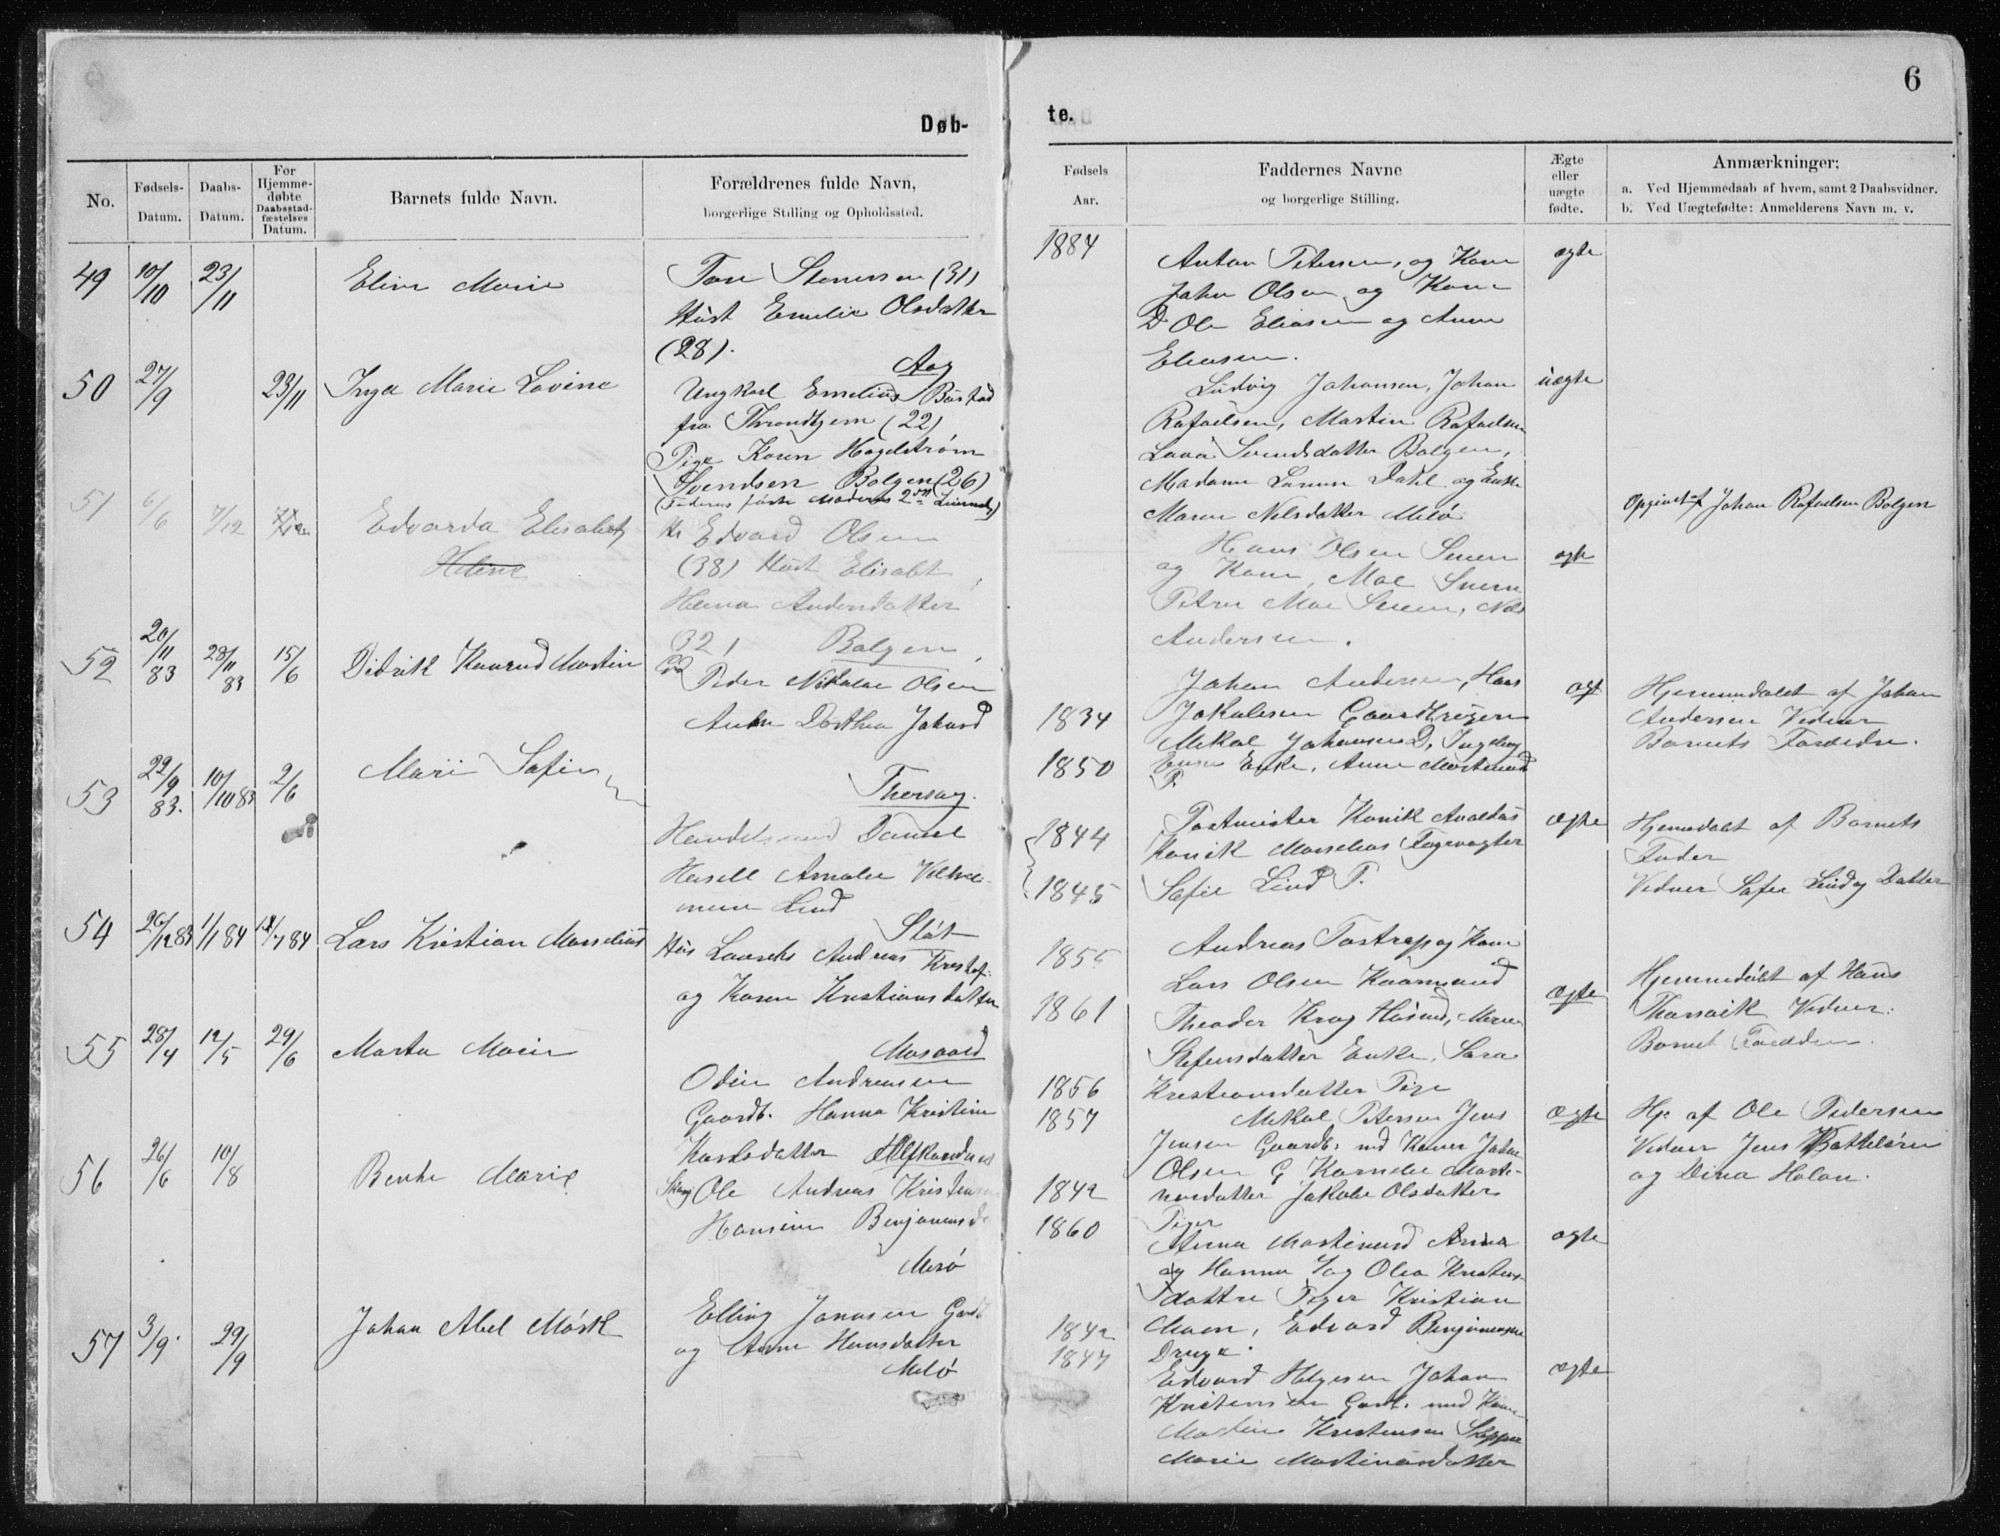 6
Døb-
te.
No.
Fødsels-
Datum.
Daabs-
Datum.
For
Hjemme-
døbte
Daabsstad-
fæstelses
Datum.
Barnets fulde Navn.
Forældrenes fulde Navn,
borgerlige Stilling og Opholdssted.
Fødsels
Aar.
Faddernes Navne
og borgerlige Stilling.
Ægte
eller
uægte
fødte.
Anmærkninger:
a. Ved Hjemmedaab af hvem, samt 2 Daabsvidner.
b. Ved Uægtefødte: Anmelderens Navn m. v.
1884
49 10/10 23/11 Eline Marie
Tore (31)
Hust Emelie Olsdatter
(28).
Aag
Anton Petersen, og Kone
Johan Olsen og Kone
D Ole Eliasen og Anne
Eliasen.
ægte
50 27/9 23/11 Inga Marie Lovine
Ungkarl Emelius Bustad
fra Throndhjem (22)
Pige Karen Hagelstrøm
Svendsen Bolgen (26)
(Faderens første Moderens 2den
Ludvig Johansen, Johan
Rafaelsen, Martin Rafaelsen
Svendsdatter Bolgen,
Madame Dahl og Enke
Maren Nilsdatter Melø
uægte
Opgivet af Johan Rafaelsen Bolgen
51 6/6 7/12 Edvarda Elisabeth
Helene
Edvard Olsen
(38) Hust Elisabt
Andersdatter
32) Bolgen
Hans Olsen
og Kone,
Andersen.
ægte
52 20/11 83 28/11 83 15/6 Didrik Konrad Martin
Peder Nikolai Olsen
Anne Dorthea Johansd
Thorsvg.
1834
1850
Johan Andersen, Hans
Jakobsen Gaardbruger
Mikal Johansen D, Ingeborg
Enke, Anne Martinusd
P.
ægt
Hjemmedøbt af Johan
Andersen Vidner
Barnets Forældre.
53 22/9 83. 10/10 83 2/6 Marie Sofie
Handelsmand Daniel
Amalie Vilhel-
mine Lind
Støt
1844
1845
Marselius Fogevogter
Sofie Lind P.
ægte
Hjemedøbt af Barnets
Fader
Vidner Sofie Lind og Datter
54 26/12 83 1/1 84 13/7 84 Lars Kristian Marselius
Hus Andreas Kristof.
og Karen Kristiansdatter
Mosaard
1855
1861
Andreas Tostrup og Kone
Lars Olsen
Theodor Krog Husmd,
Stefensdatter Enke, Sara
Kristiansdatter Pige
ægte
Hjemmedøbt af Hans
Thorsvik Vidner:
Barnets Forældre.
55 28/4 12/5 29/6 Marta Marie
Odin Andreassen
Gaardb. Hanna Kristine
Karlsdatter
1856
1857
Mikal Petersen Jens
Jensen Gaardb. md Koner Johan
Olsen G Kornelie Marti-
nusdatter Jakobe Olsdatter
Piger
ægte
Hje af Ole Pedersen
Vidner Jens
og Dina Holan.
56 26/6 10/8 Bente Marie
Ole Andreas Kristensen
Hansine Benjaminsd
Mesø
1842
1860
Anna Martinusd Anna
og Hanna Olea Kristens-
døttre Piger Kristian
Edvard Benjaminsen
Drenge.
ægte
57 3/9. 29/9 Johan Abel Mørk
Elling Jonasen Gaard.
og Anne Hansdatter
Melø
1842
1847
Edvard Helgesen Johan
Kristensen Gaard. med Kone
Martin Kristensen Skipper
Marie Martinusdatter
ægte